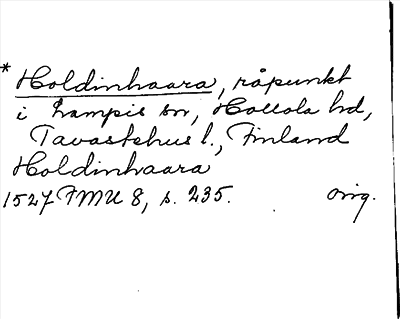 * Holdinhaara, råpunkt
i Lampis sn, Hollola hd,
Tavastehus l., Finland
Holdinhaara
1527 FMU 8, s. 235. orig.